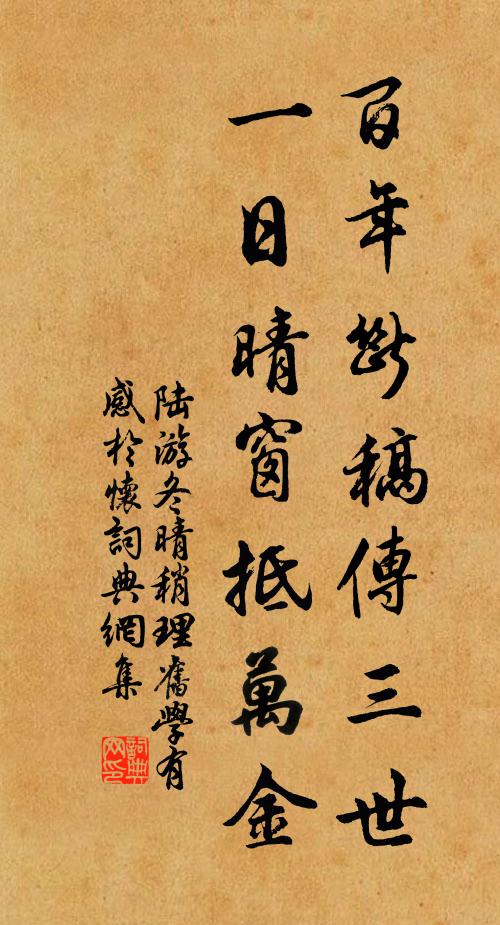 百年斷稿傳三世
一日晴窗抵萬金
陆游冬晴稍理舊學有
感於懷詞典網集
詞典
网印